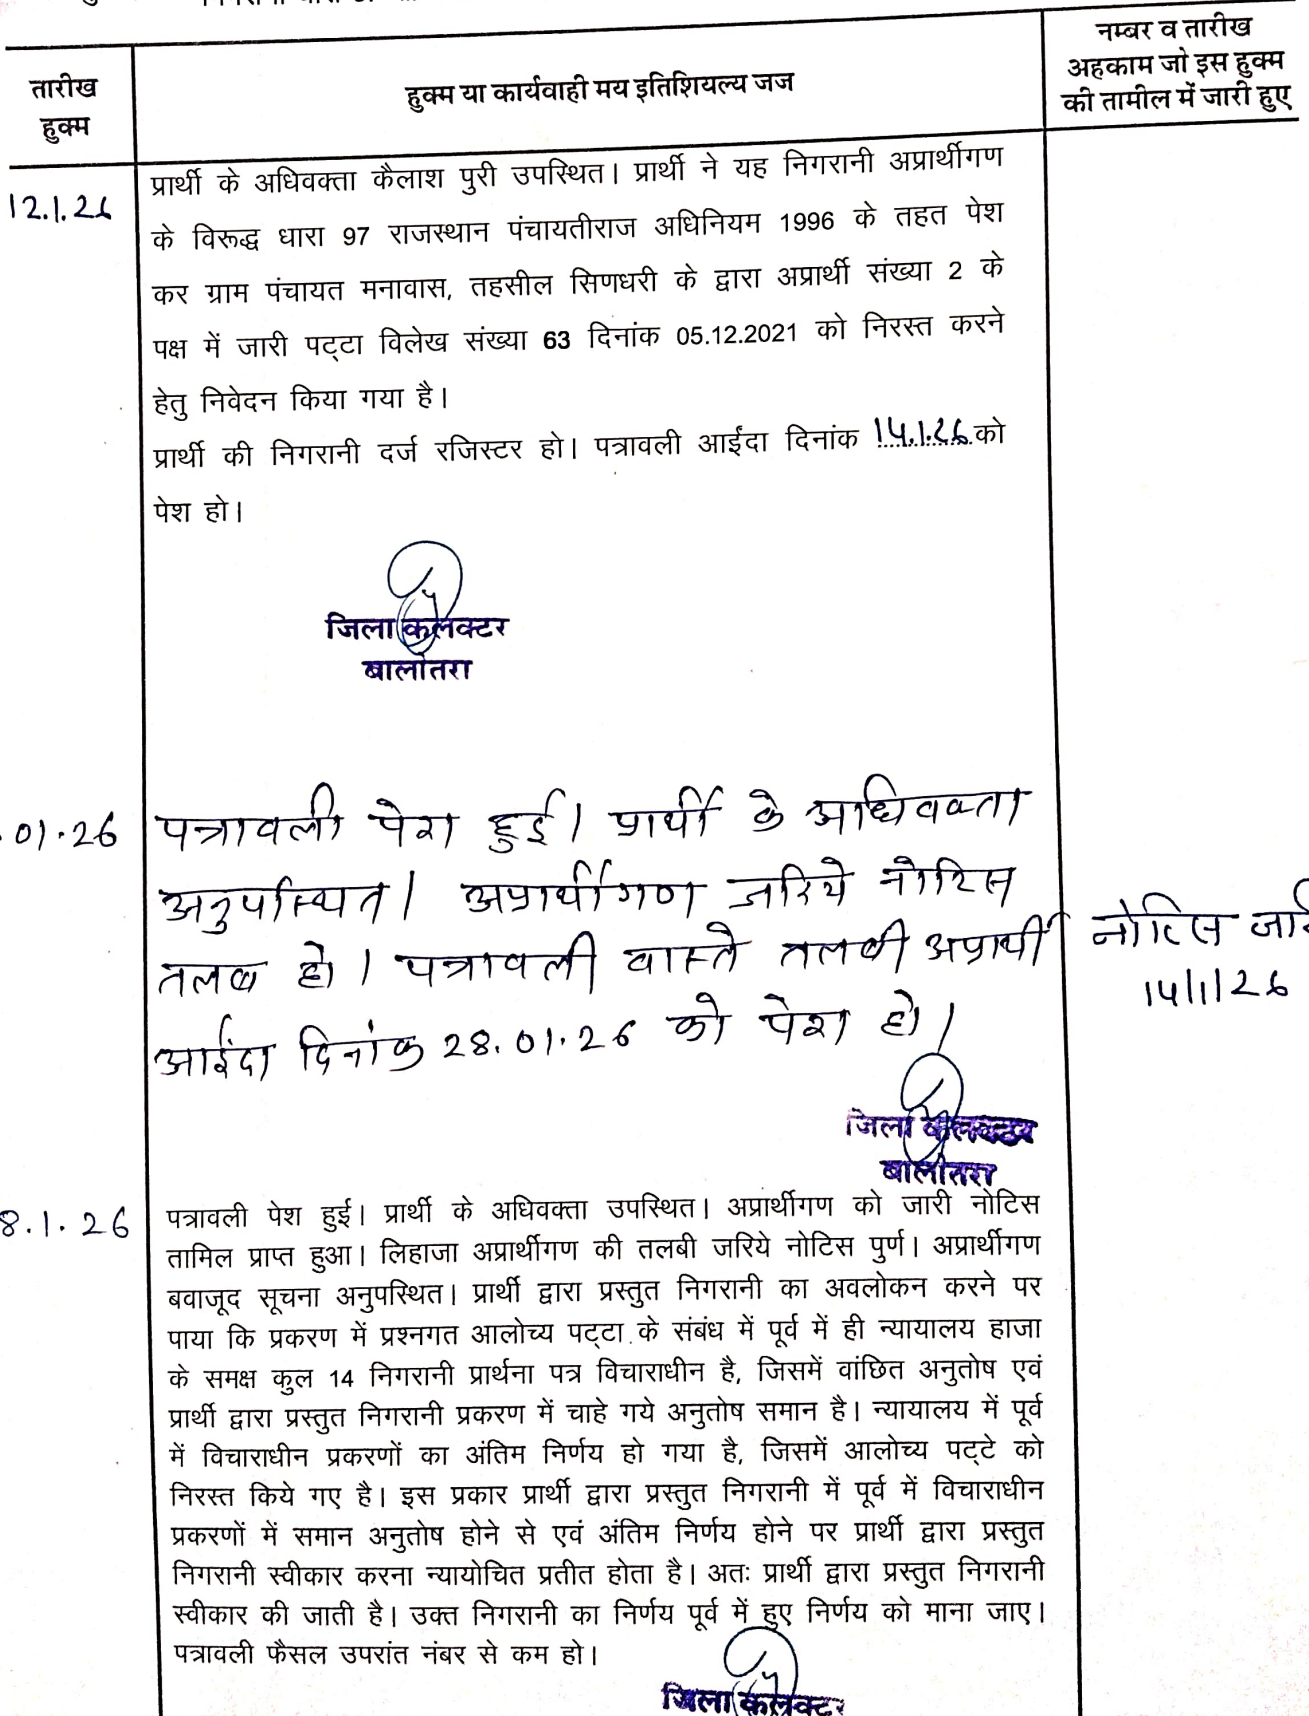 तारीख
हुक्म
हुक्म या कार्यवाही मय इतिशियल्य जज
नम्बर व तारीख
अहकाम जो इस हुक्म
की तामील में जारी हुए
12.1.26
प्रार्थी के अधिवक्ता कैलाश पुरी उपस्थित। प्रार्थी ने यह निगरानी अप्रार्थीगण
के विरूद्ध धारा 97 राजस्थान पंचायतीराज अधिनियम 1996 के तहत पेश
कर ग्राम पंचायत मनावास, तहसील सिणधरी के द्वारा अप्रार्थी संख्या 2 के
पक्ष में जारी पट्टा विलेख संख्या 63 दिनांक 05.12.2021 को निरस्त करने
हेतु निवेदन किया गया है।
प्रार्थी की निगरानी दर्ज रजिस्टर हो। पत्रावली आईंदा दिनांक 14.1.26 को
पेश हो।
जिला कलक्टर
बालोतरा
.01.26
पत्रावली पेश हुई। प्रार्थी के अधिवक्ता
अनुपस्थित। अप्रार्थीगण जरिये नोटिस
तलब हो। पत्रावली वास्ते तलबी अप्रार्थी
आईंदा दिनांक 28.01.26 को पेश हो।
नोटिस जारी
14/1/26
जिला कलक्टर
बालोतरा
8.1.26
पत्रावली पेश हुई। प्रार्थी के अधिवक्ता उपस्थित। अप्रार्थीगण को जारी नोटिस
तामिल प्राप्त हुआ। लिहाजा अप्रार्थीगण की तलबी जरिये नोटिस पुर्ण। अप्रार्थीगण
बवाजूद सूचना अनुपस्थित। प्रार्थी द्वारा प्रस्तुत निगरानी का अवलोकन करने पर
पाया कि प्रकरण में प्रश्नगत आलोच्य पट्टा के संबंध में पूर्व में ही न्यायालय हाजा
के समक्ष कुल 14 निगरानी प्रार्थना पत्र विचाराधीन है, जिसमें वांछित अनुतोष एवं
प्रार्थी द्वारा प्रस्तुत निगरानी प्रकरण में चाहे गये अनुतोष समान है। न्यायालय में पूर्व
में विचाराधीन प्रकरणों का अंतिम निर्णय हो गया है, जिसमें आलोच्य पट्टे को
निरस्त किये गए है। इस प्रकार प्रार्थी द्वारा प्रस्तुत निगरानी में पूर्व में विचाराधीन
प्रकरणों में समान अनुतोष होने से एवं अंतिम निर्णय होने पर प्रार्थी द्वारा प्रस्तुत
निगरानी स्वीकार करना न्यायोचित प्रतीत होता है। अतः प्रार्थी द्वारा प्रस्तुत निगरानी
स्वीकार की जाती है। उक्त निगरानी का निर्णय पूर्व में हुए निर्णय को माना जाए।
पत्रावली फैसल उपरांत नंबर से कम हो।
जिला कलक्टर